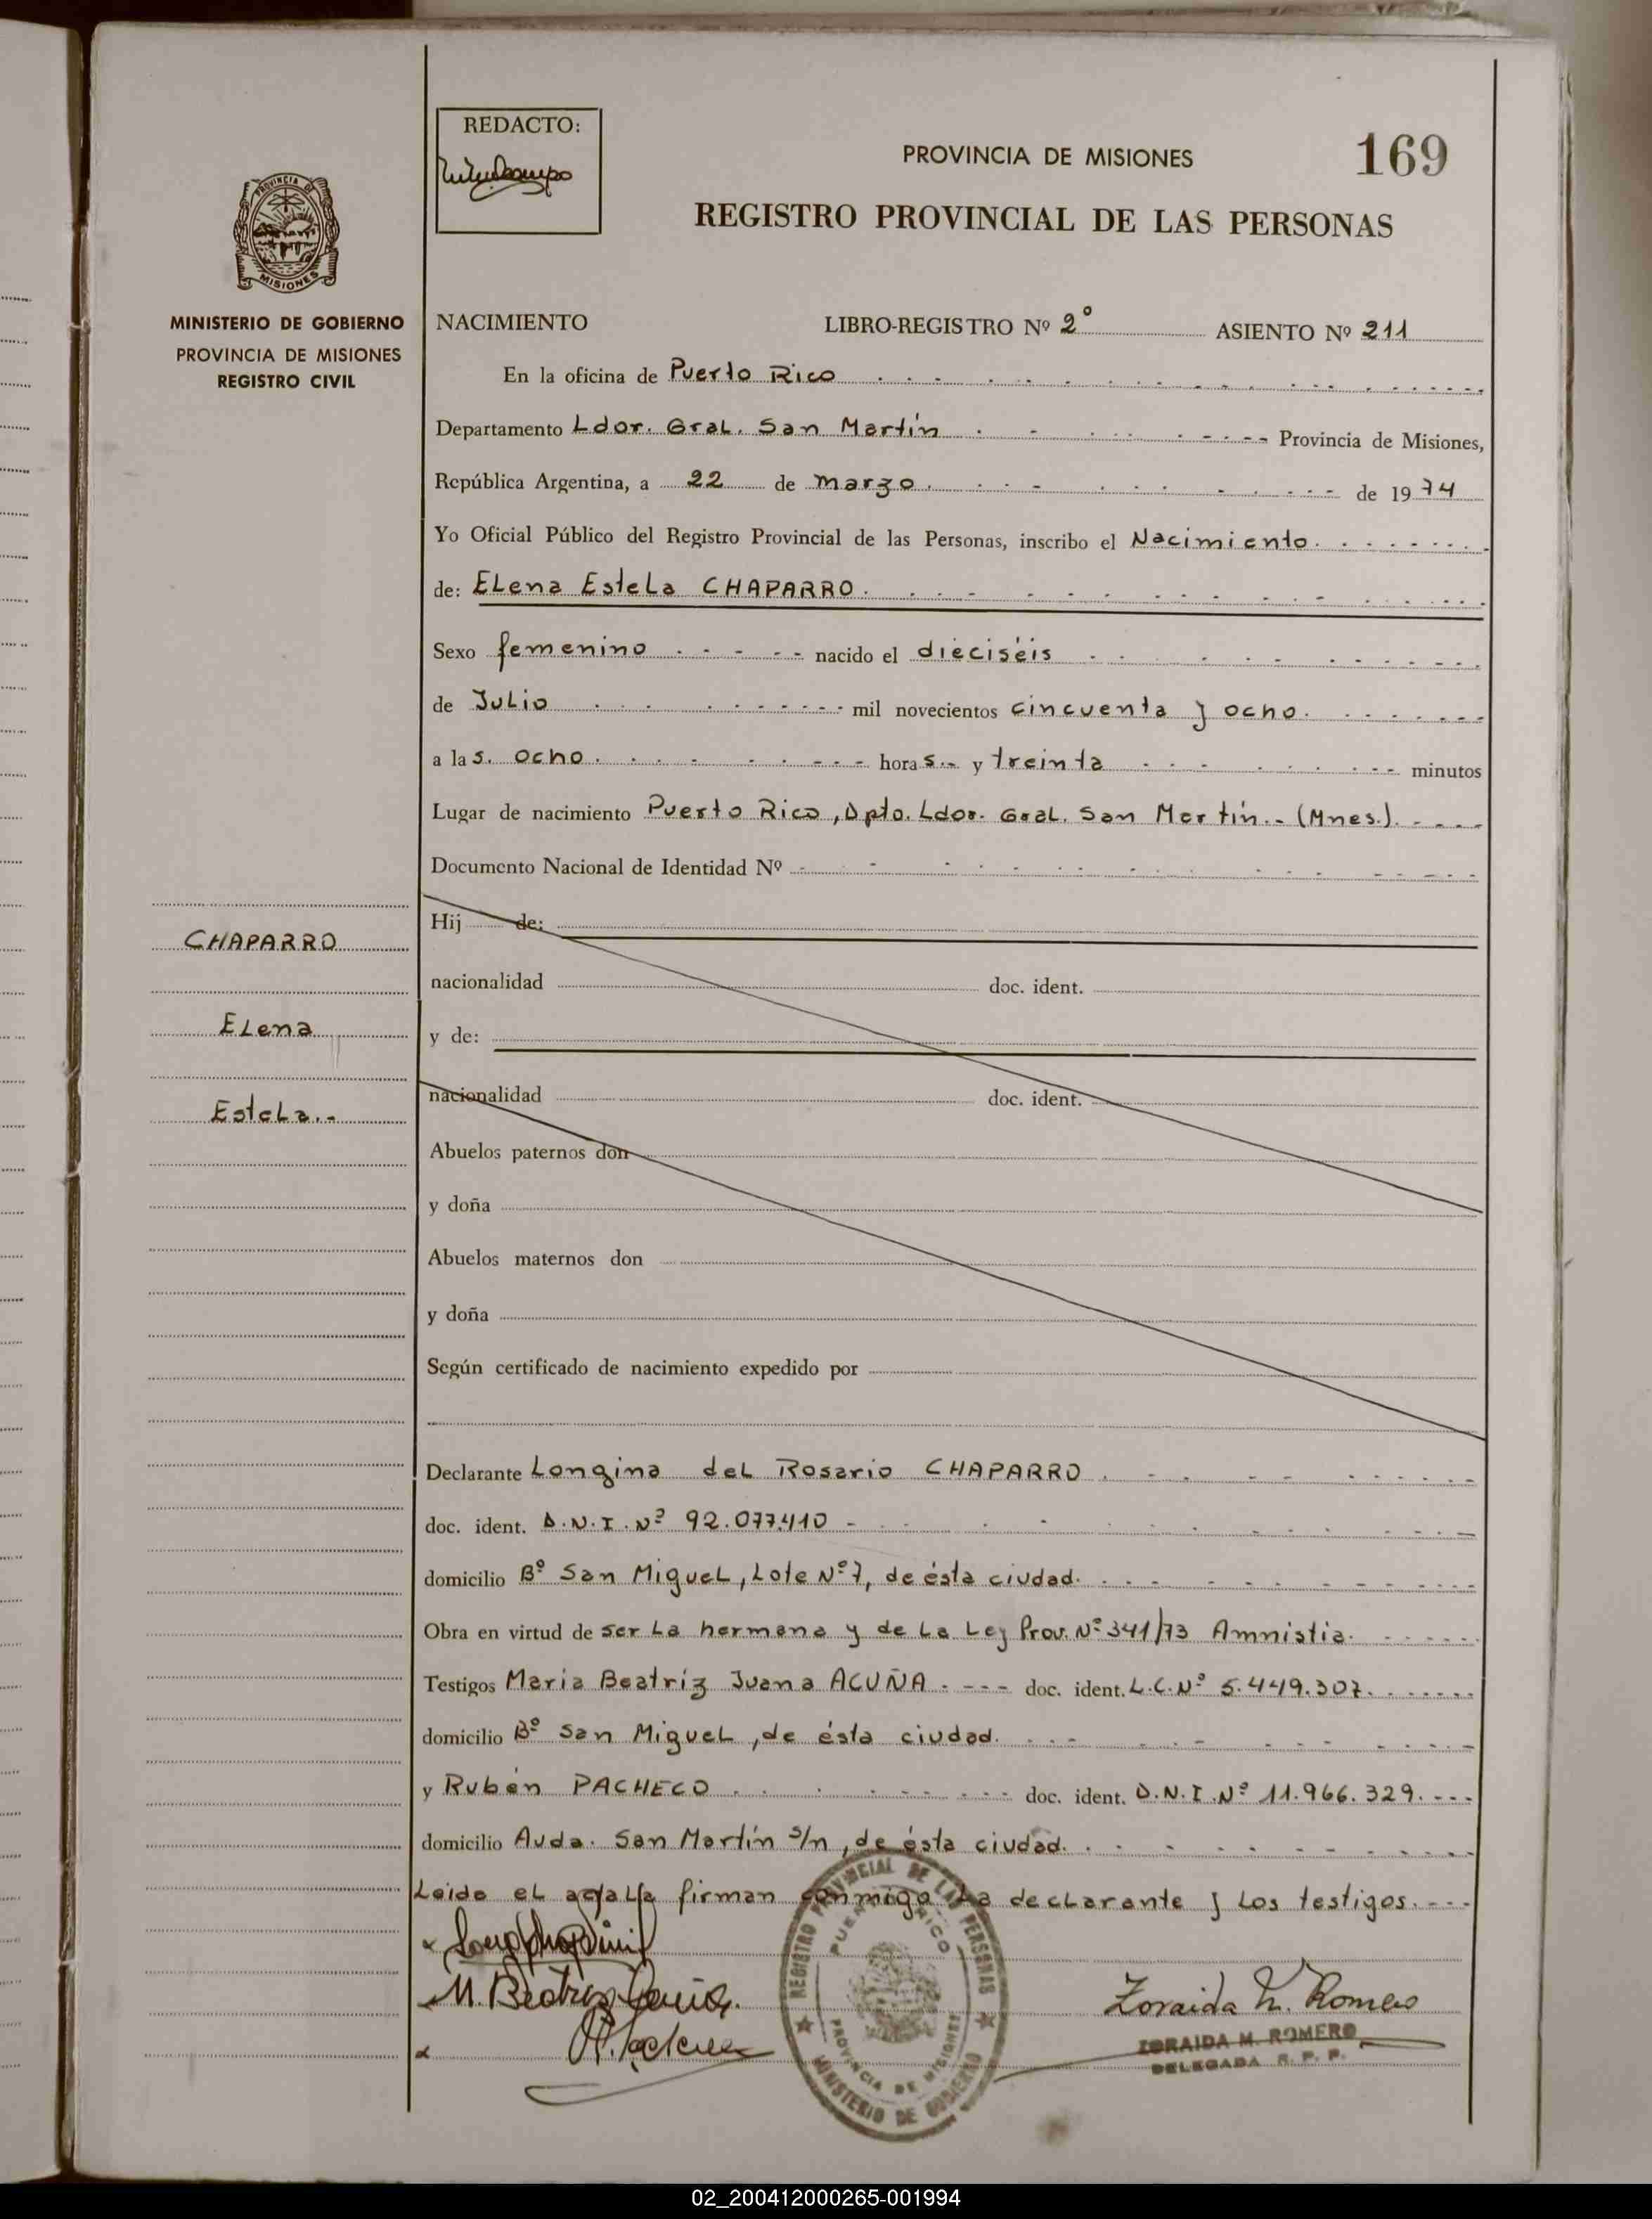 REDACTO:
PROVINCIA DE MISIONES
169
REGISTRO PROVINCIAL DE LAS PERSONAS
PROVINCIA DE
MISIONES
MINISTERIO DE GOBIERNO
PROVINCIA DE MISIONES
REGISTRO CIVIL
NACIMIENTO LIBRO-REGISTRO Nº 2° ASIENTO Nº 211
En la oficina de Puerto Rico
Departamento Ldor. Gral. San Martín Provincia de Misiones,
República Argentina, a 22 de marzo de 1974
Yo Oficial Público del Registro Provincial de las Personas, inscribo el Nacimiento
de: Elena Estela CHAPARRO
Sexo femenino nacido el dieciséis
de Julio mil novecientos cincuenta y ocho
a las ocho horas y treinta minutos
Lugar de nacimiento Puerto Rico, Dpto. Ldor. Gral. San Martín.- (Mnes.)
Documento Nacional de Identidad Nº
Hij de:
nacionalidad doc. ident.
y de:
nacionalidad doc. ident.
Abuelos paternos don
y doña
Abuelos maternos don
y doña
Según certificado de nacimiento expedido por
CHAPARRO
Elena
Estela.-
Declarante Longina del Rosario CHAPARRO
doc. ident. D.N.I. Nº 92.077.410
domicilio Bº San Miguel, Lote Nº 7, de ésta ciudad.
Obra en virtud de ser la hermana y de la Ley Prov. Nº 341/73 Amnistia.
Testigos Maria Beatríz Juana ACUÑA doc. ident. L.C. Nº 5.449.307.
domicilio Bº San Miguel, de ésta ciudad.
y Rubén PACHECO doc. ident. D.N.I. Nº 11.966.329.
domicilio Avda. San Martín s/n, de ésta ciudad.
Leida el acta la firman conmigo la declarante y los testigos.
M. Beatriz Acuña.
Zoraida M. Romero
ZORAIDA M. ROMERO
DELEGADA R. P. P.
REGISTRO PROVINCIAL DE LAS PERSONAS
PUERTO RICO
PROVINCIA DE MISIONES
MINISTERIO DE GOBIERNO
02_200412000265-001994